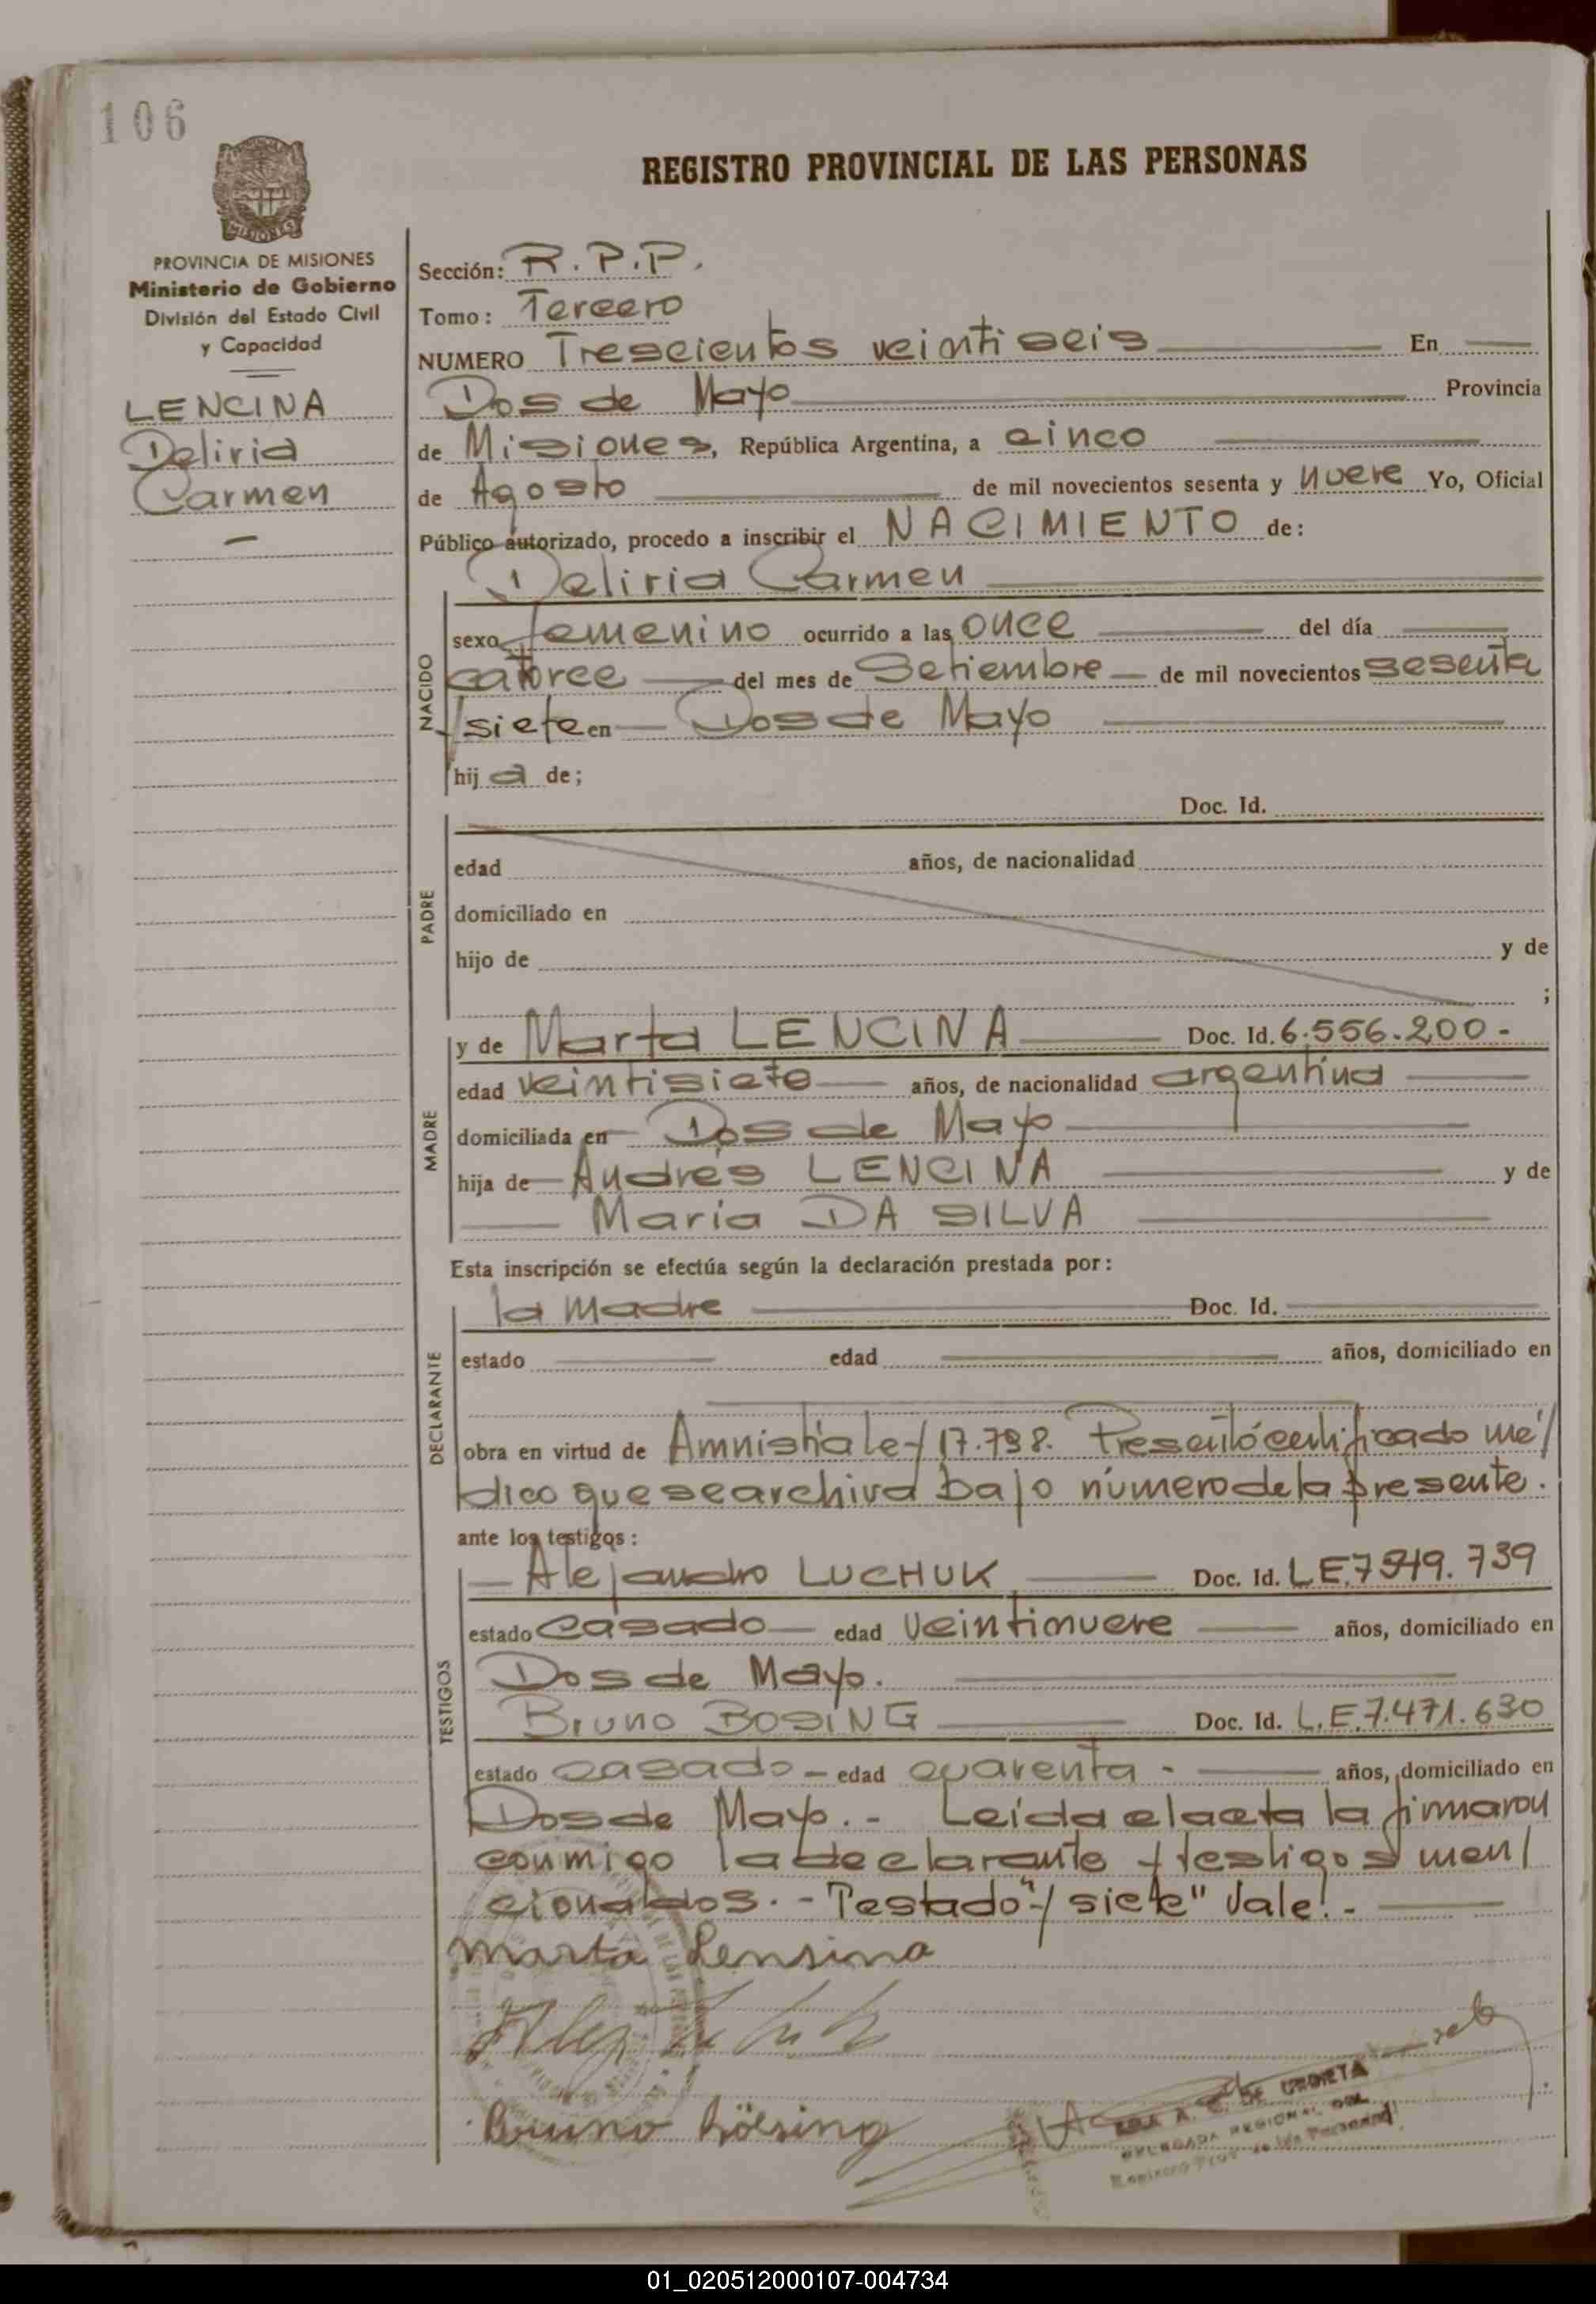 106
REGISTRO PROVINCIAL DE LAS PERSONAS
MISIONES
PROVINCIA DE MISIONES
Ministerio de Gobierno
División del Estado Civil
y Capacidad
LENCINA
Deliria
Carmen
Sección: R.P.P.
Tomo: Tercero
NUMERO Trescientos veintiseis En
Dos de Mayo Provincia
de Misiones, República Argentina, a cinco
de Agosto de mil novecientos sesenta y nueve Yo, Oficial
Público autorizado, procedo a inscribir el NACIMIENTO de:
Deliria Carmen
NACIDO
sexo femenino ocurrido a las once del día
catorce del mes de Setiembre de mil novecientos sesenta
/siete en Dos de Mayo
hija de;
PADRE
Doc. Id.
edad años, de nacionalidad
domiciliado en
hijo de y de
;
MADRE
y de Marta LENCINA Doc. Id. 6.556.200-
edad veintisiete años, de nacionalidad argentina
domiciliada en Dos de Mayo
hija de Andrés LENCINA y de
Maria DA SILVA
Esta inscripción se efectúa según la declaración prestada por:
DECLARANTE
la madre Doc. Id.
estado edad años, domiciliado en
obra en virtud de Amnistia ley 17.798. Presentó certificado mé/
dico que se archiva bajo número de la presente.
ante los testigos:
TESTIGOS
Alejandro LUCHUK Doc. Id. LE. 739
estado casado edad veintinueve años, domiciliado en
Dos de Mayo.
Bruno BOSING Doc. Id. L.E.7.471.630
estado casado - edad cuarenta - años, domiciliado en
Dos de Mayo.- Leída el acta la firmaron
conmigo la declarante y testigos men/
cionados.- Testado "/siete" Vale!.-
Marta Lensina
Bruno Bösing
DE URRETA
DELEGADA REGIONAL DEL
Registro Prov. de las Personas
01_020512000107-004734